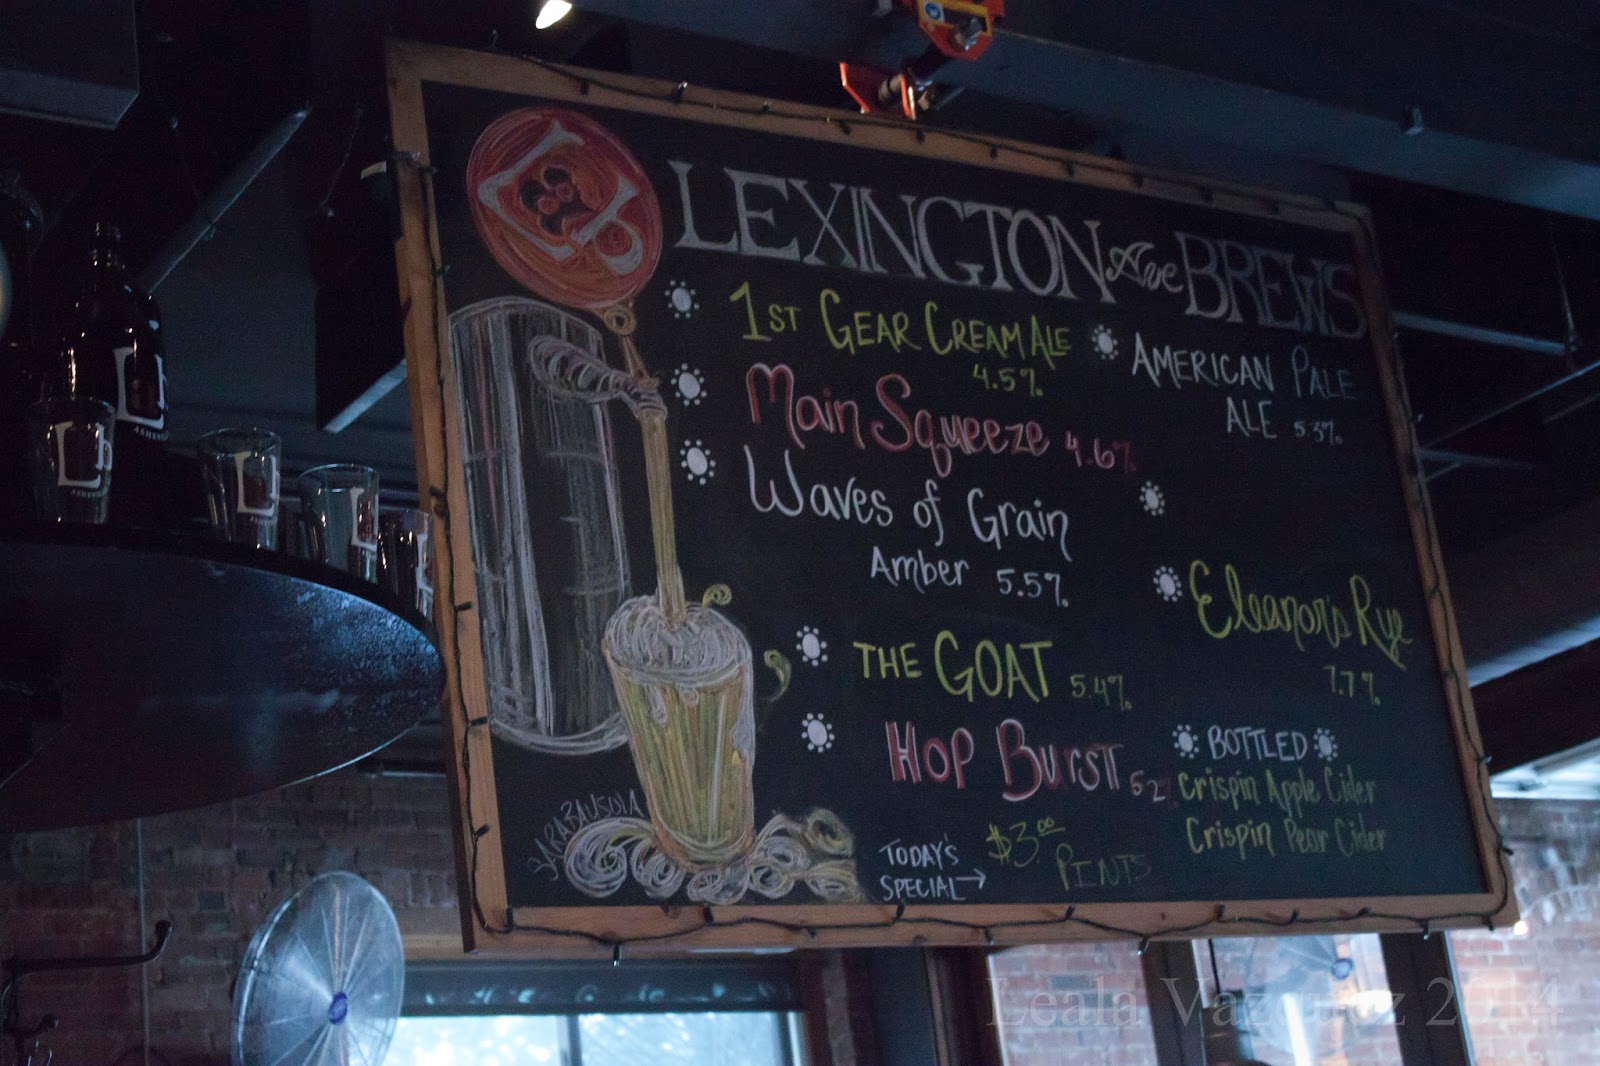 LEXINGTON Ave BREWS
1ST GEAR CREAM ALE
4.5%
Main Squeeze 4.6%
Waves of Grain
Amber 5.5%
THE GOAT 5.4%
HOP BURST 5.2%
AMERICAN PALE
ALE 5.3%
Eleanor's Rye
7.7%
BOTTLED
Crispin Apple Cider
Crispin Pear Cider
TODAY'S
SPECIAL→
$3.00
PINTS
SARABAUSOLA
LAB
L
ASHEVILLE
Leala Vazquez 2014